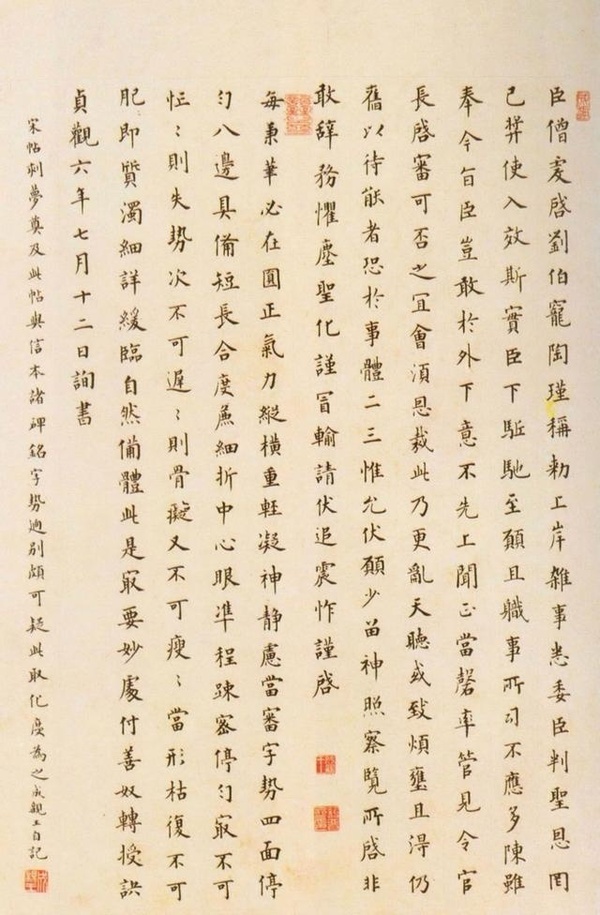 臣僧虔啓劉伯寵陶瑾稱勑工岸雜事悉委臣判聖恩罔
已弉使入效斯實臣下駈馳至願且職事所司不應多陳雖
奉今旨臣豈敢於外下意不先上聞正當罄率管見令官
長啓審可否之冝會湏恩裁此乃更亂天聽或致煩壅且淂仍
舊以待能者恐於事體二三惟允伏願少畄神照察覽所啓非
敢辞務懼塵聖化謹冒輸請伏追震怍謹啓
每秉筆必在圓正氣力縱橫重輕凝神静慮當審字勢四面停
勻八邊具備短長合度麄細折中心眼準程踈密停勻冣不可
忙〻則失勢次不可遲〻則骨癡又不可瘦〻當形枯復不可
肥即質濁細詳緩臨自然備體此是冣要妙處付善奴轉授訣
貞觀六年七月十二日詢書
宋帖刺夢奠及此帖與信本諸碑銘字勢迥别頗可疑此取化度為之成親王自記